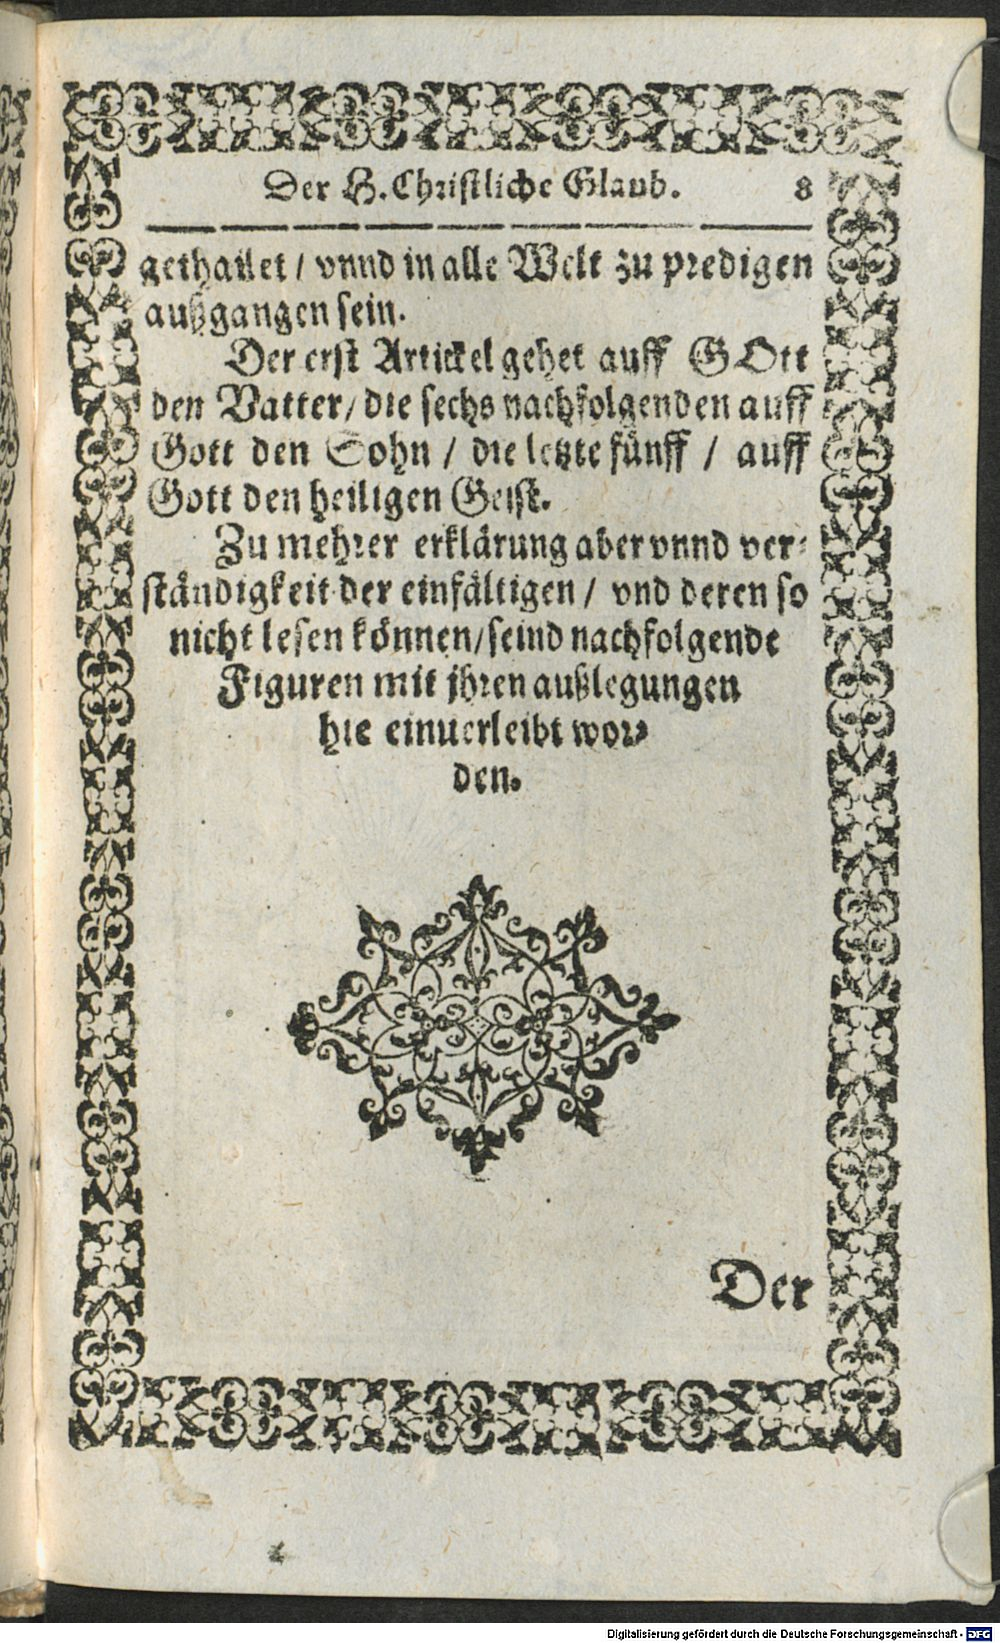 Der H. Christliche Glaub. 8
gethailet / vnnd in alle Welt zu predigen
außgangen sein.
Der erst Artickel gehet auff GOtt
den Vatter / die sechs nachfolgenden auff
Gott den Sohn / die letzte fünff / auff
Gott den heiligen Geist.
Zu mehrer erklärung aber vnnd ver-
ständigkeit der einfältigen / vnd deren so
nicht lesen können / seind nachfolgende
Figuren mit jhren außlegungen
hie einuerleibt wor-
den.
Der
Digitalisierung gefördert durch die Deutsche Forschungsgemeinschaft - DFG